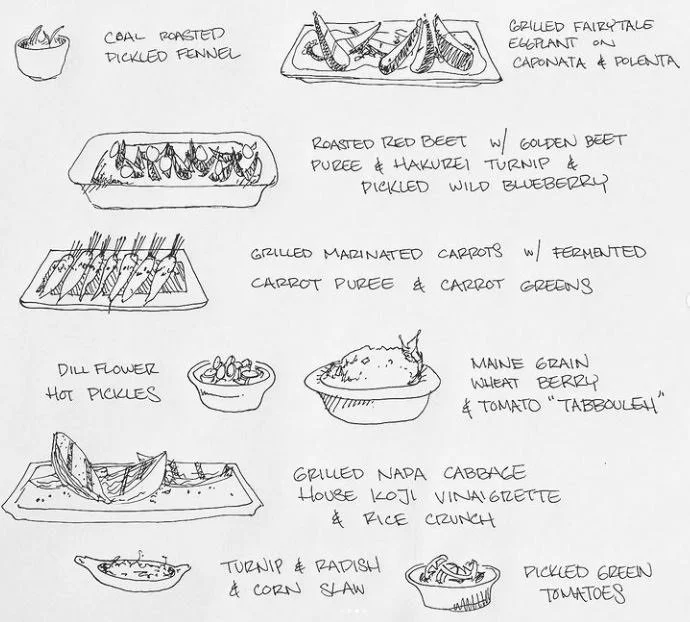 COAL ROASTED
PICKLED FENNEL
GRILLED FAIRYTALE
EGGPLANT ON
CAPONATA & POLENTA
ROASTED RED BEET w/ GOLDEN BEET
PUREE & HAKUREI TURNIP &
PICKLED WILD BLUEBERRY
GRILLED MARINATED CARROTS w/ FERMENTED
CARROT PUREE & CARROT GREENS
DILL FLOWER
HOT PICKLES
MAINE GRAIN
WHEAT BERRY
& TOMATO "TABBOULEH"
GRILLED NAPA CABBAGE
HOUSE KOJI VINAIGRETTE
& RICE CRUNCH
TURNIP & RADISH
& CORN SLAW
PICKLED GREEN
TOMATOES